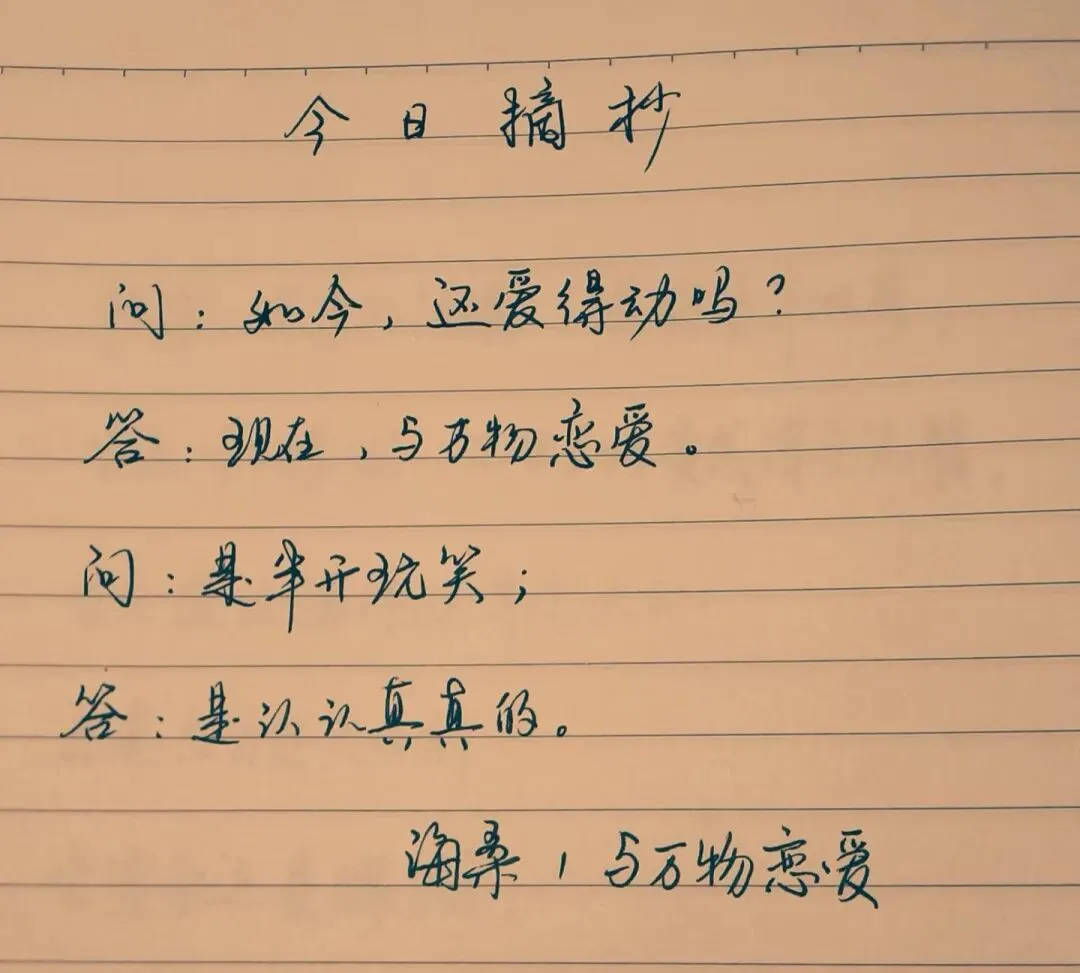 今日摘抄
问：如今，还爱得动吗？
答：现在，与万物恋爱。
问：是半开玩笑；
答：是认认真真的。
海桑，与万物恋爱